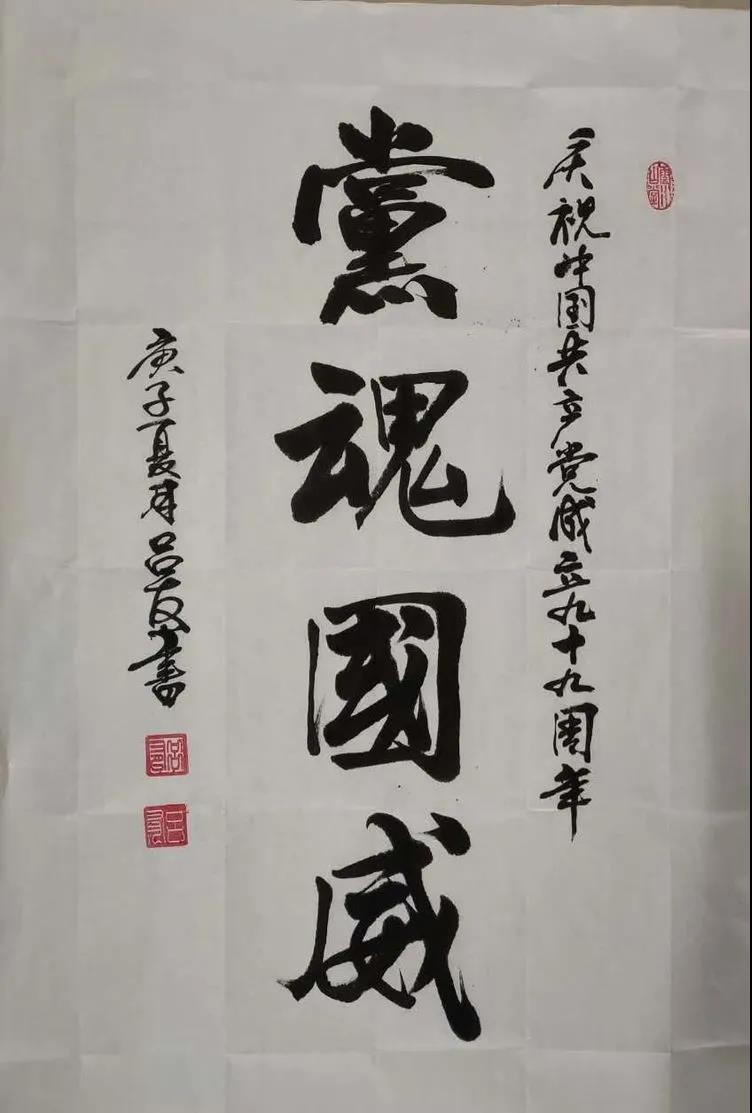 庆祝中国共产党成立九十九周年
黨魂國威
庚子夏月吕友书